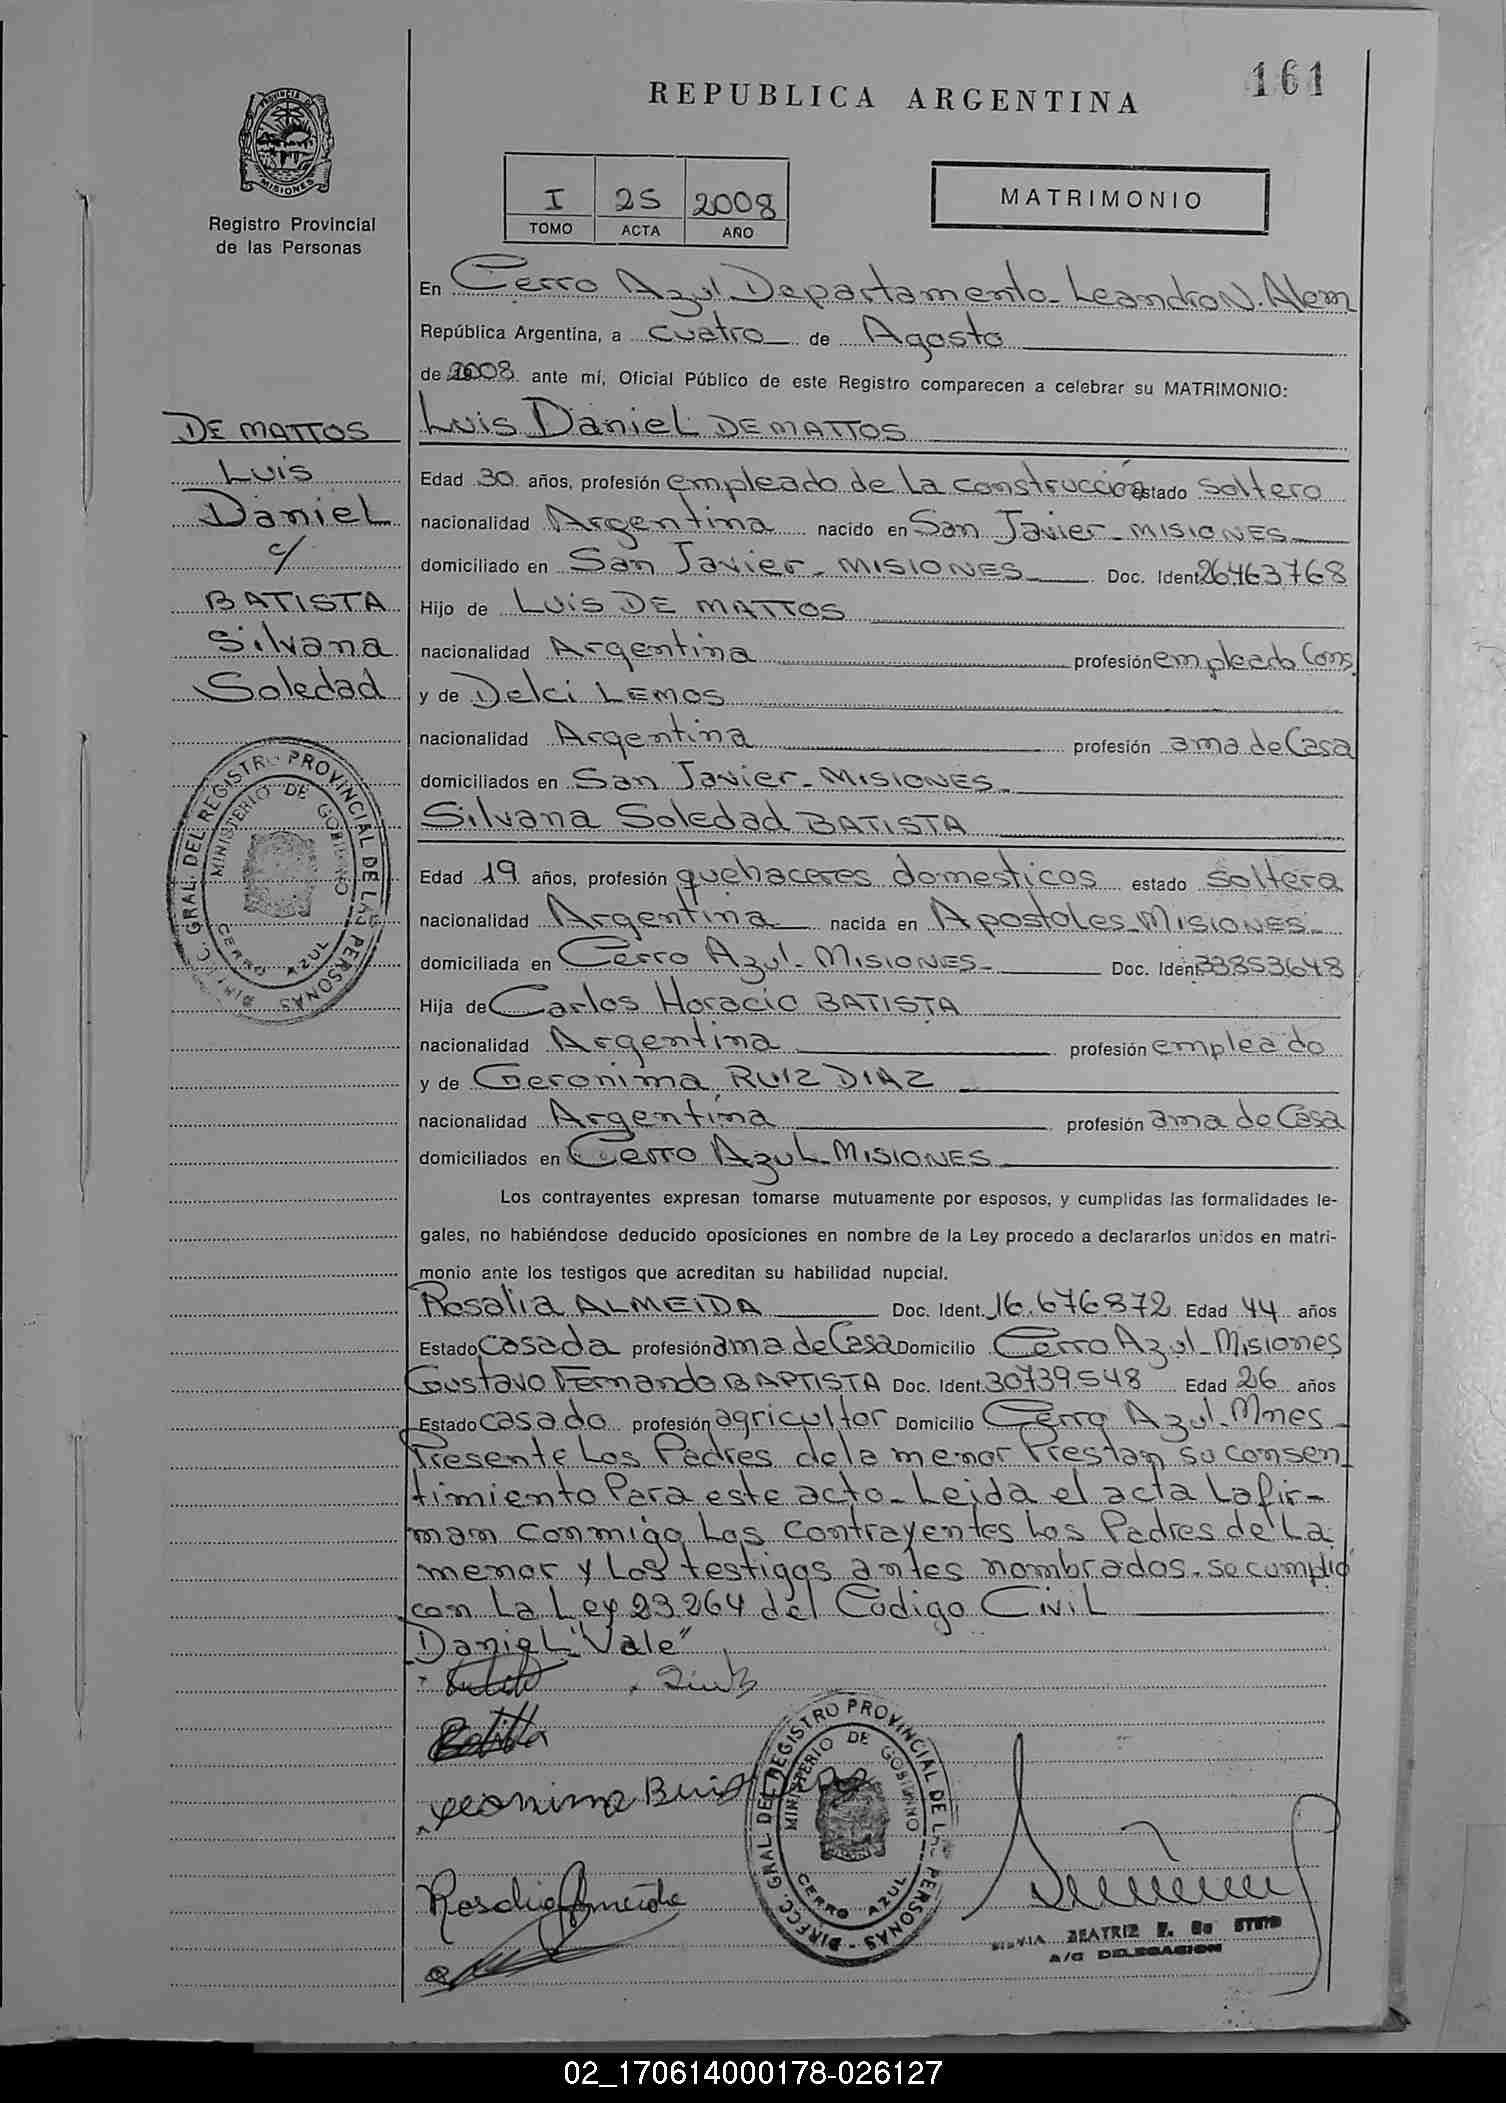 161
REPUBLICA ARGENTINA
PROVINCIA DE MISIONES
Registro Provincial
de las Personas
I 25 2008
TOMO ACTA AÑO
MATRIMONIO
En Cerro Azul Departamento - Leandro N. Alem
República Argentina, a cuatro de Agosto
de 2008 ante mí, Oficial Público de este Registro comparecen a celebrar su MATRIMONIO:
DE MATTOS
Luis
Daniel
c/
BATISTA
Silvana
Soledad
Luis Daniel DE MATTOS
Edad 30 años, profesión empleado de la construcción estado soltero
nacionalidad Argentina nacido en San Javier - MISIONES
domiciliado en San Javier - MISIONES Doc. Ident. 26463768
Hijo de Luis DE MATTOS
nacionalidad Argentina profesión empleado Cons.
y de Delci LEMOS
nacionalidad Argentina profesión ama de Casa
domiciliados en San Javier - MISIONES -
Silvana Soledad BATISTA
Edad 19 años, profesión quehaceres domesticos estado soltera
nacionalidad Argentina nacida en Apostoles - MISIONES -
domiciliada en Cerro Azul - MISIONES - Doc. Ident. 33853648
Hija de Carlos Horacio BATISTA
nacionalidad Argentina profesión empleado
y de Geronima RUIZ DIAZ
nacionalidad Argentina profesión ama de Casa
domiciliados en Cerro Azul - MISIONES
Los contrayentes expresan tomarse mutuamente por esposos, y cumplidas las formalidades le-
gales, no habiéndose deducido oposiciones en nombre de la Ley procedo a declararlos unidos en matri-
monio ante los testigos que acreditan su habilidad nupcial.
Rosalia ALMEIDA Doc. Ident. 16.676.872 Edad 44 años
Estado casada profesión ama de Casa Domicilio Cerro Azul - Misiones
Gustavo Fernando BAPTISTA Doc. Ident. 30739.548 Edad 26 años
Estado casado profesión agricultor Domicilio Cerro Azul - Mnes -
Presente Los Padres de la menor Prestan su consen-
timiento Para este acto - Leida el acta La fir-
man conmigo Los contrayentes Los Padres de La
menor y Los testigos antes nombrados - se cumplio
con La Ley 23264 del Código Civil
Daniel "Vale"
Rosalia Almeida
DIRECC. GRAL. DEL REGISTRO PROVINCIAL DE LAS PERSONAS
MINISTERIO DE GOBIERNO
CERRO AZUL
DIRECC. GRAL. DEL REGISTRO PROVINCIAL DE LAS PERSONAS
MINISTERIO DE GOBIERNO
CERRO AZUL
SILVIA BEATRIZ
A/C DELEGACION
02_170614000178-026127